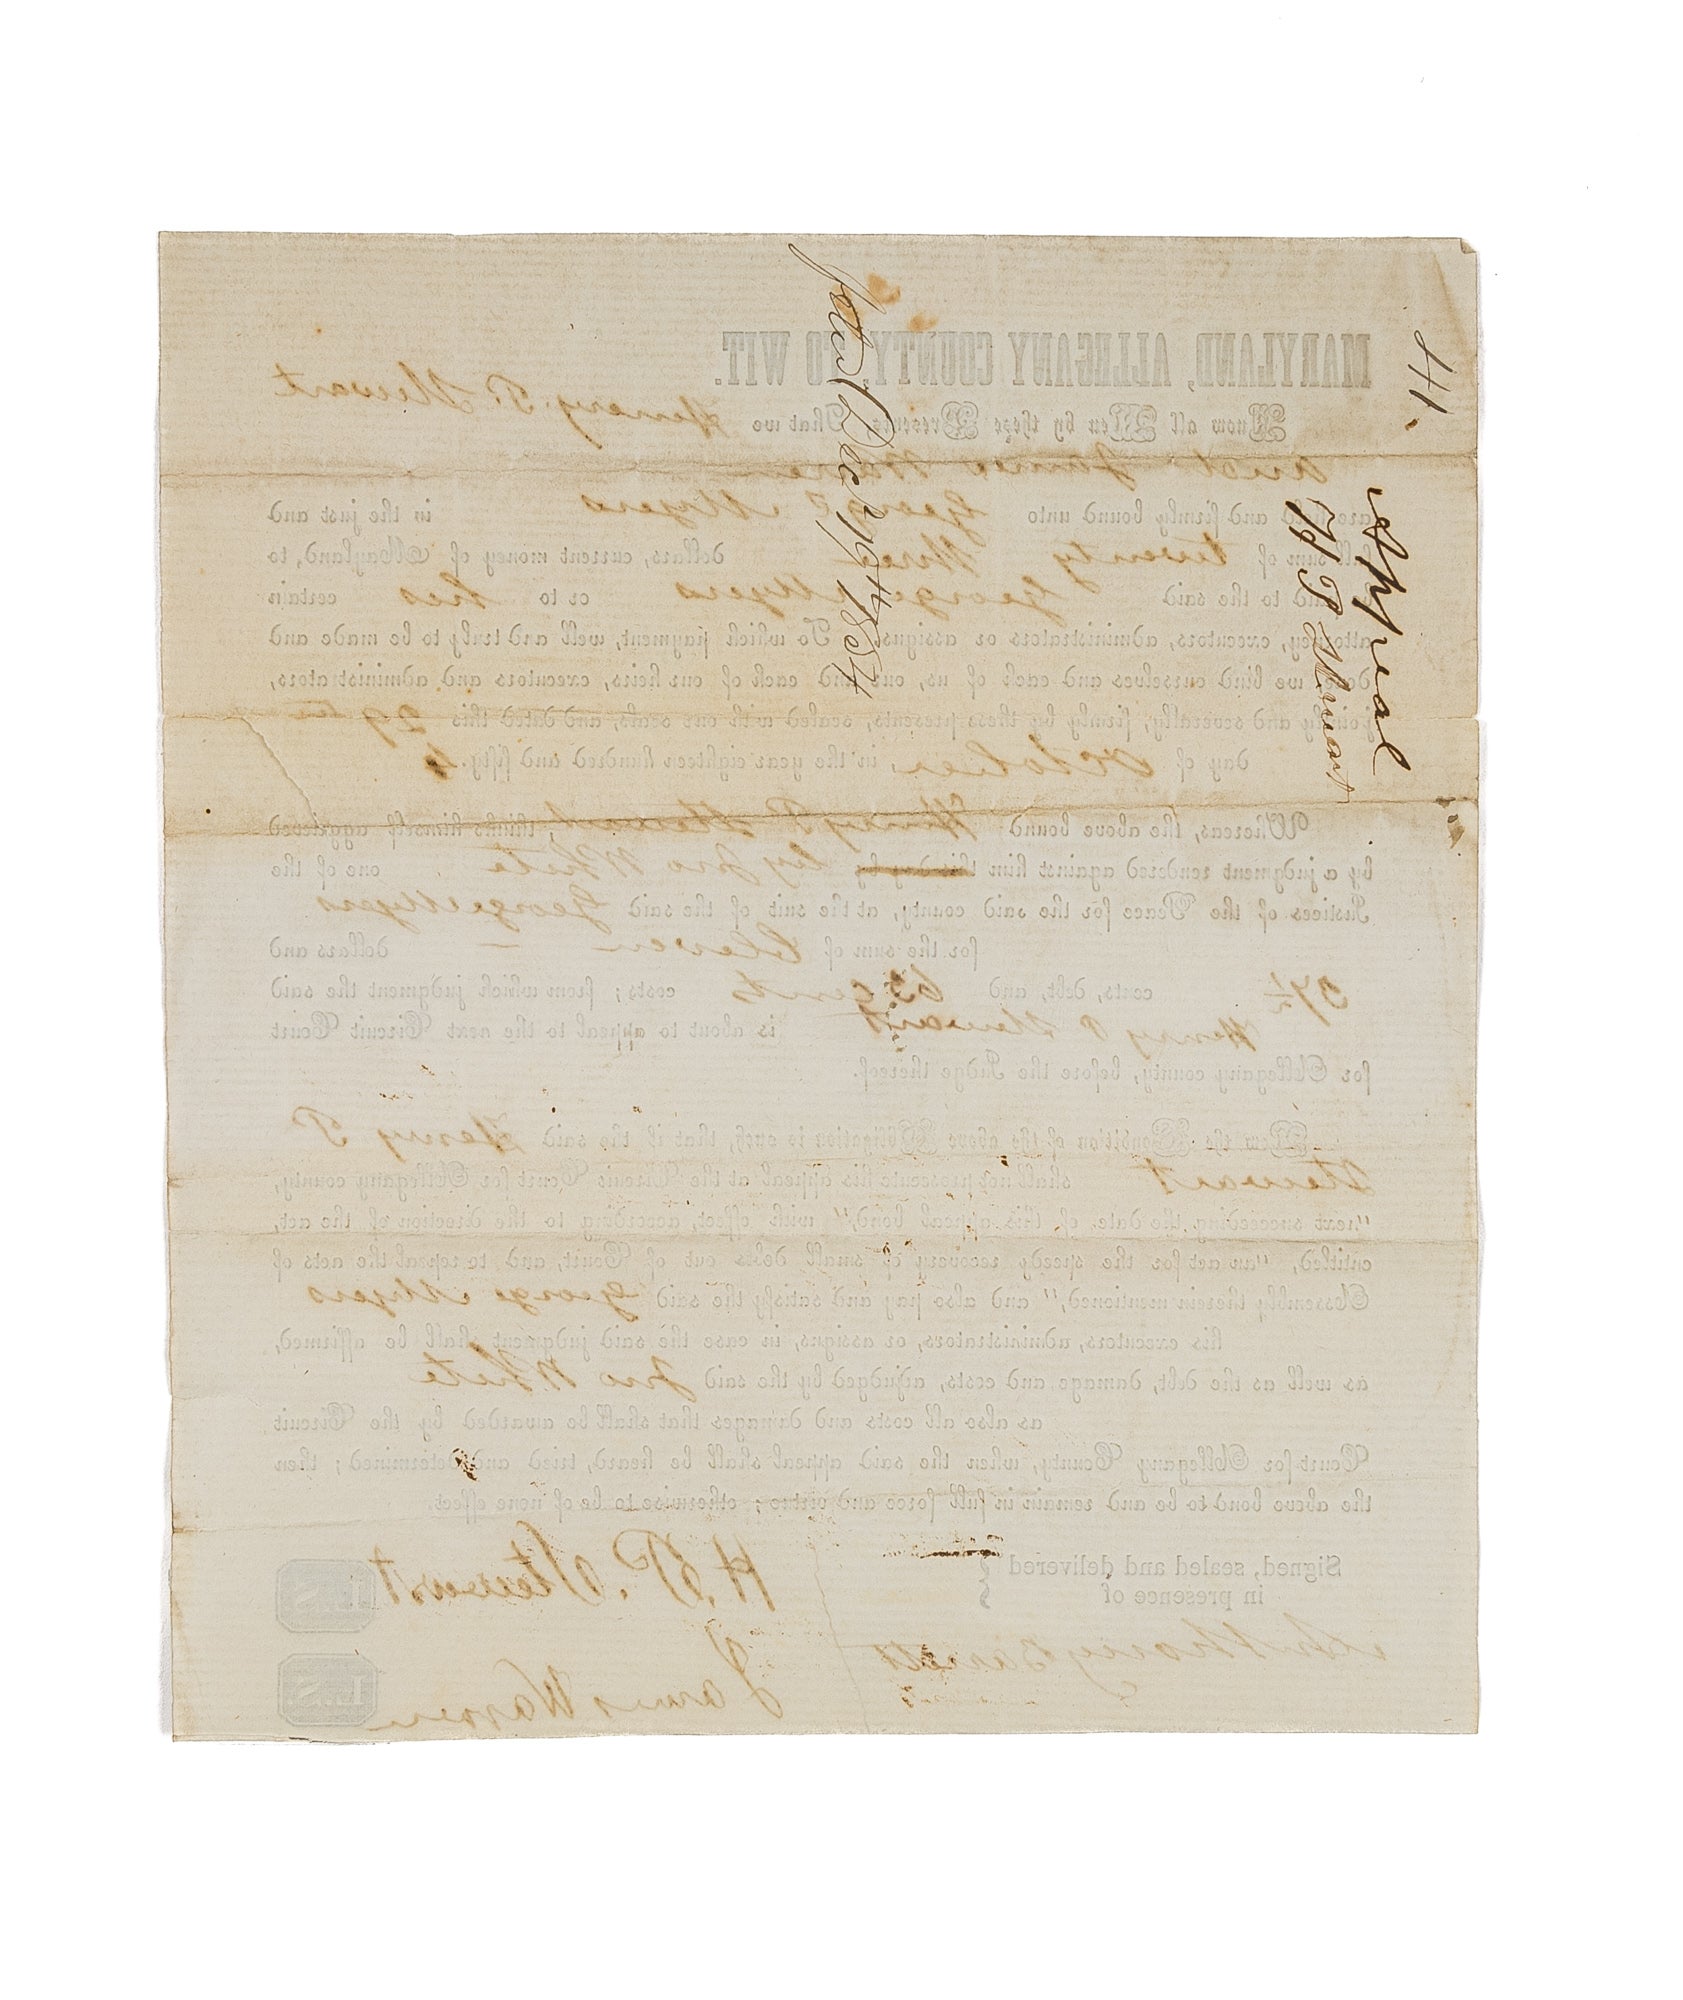 41.
Appeal
H P Stewart
filed Dec 19th 1854
MARYLAND, ALLEGANY COUNTY, TO WIT.
Know all Men by these Presents, That we Henery P Stewart
and James Warren
are held and firmly bound unto George Myers in the just and
full sum of twenty three dollars, current money of Maryland, to
be paid to the said George Myers or to his certain
attorney, executors, administrators or assigns. To which payment, well and truly to be made and
done, we bind ourselves and each of us, our and each of our heirs, executors and administrators,
jointly and severally, firmly by these presents, sealed with our seals, and dated this 29th
day of October, in the year eighteen hundred and fifty. 4
Whereas, the above bound Henry P Stewart, thinks himself aggrieved
by a judgment rendered against him this day by by Jno White one of the
Justices of the Peace for the said county, at the suit of the said George Myers
for the sum of Eleven dollars and
37½ cents, debt, and 65 cents costs; from which judgment the said
Henry P Stewart is about to appeal to the next Circuit Court
for Allegany county, before the Judge thereof.
Now the Condition of the above Obligation is such, that if the said Henry P
Stewart shall not prosecute his appeal at the Circuit Court for Allegany county,
"next succeeding the date of this appeal bond," with effect, according to the direction of the act,
entitled, "an act for the speedy recovery of small debts out of Court, and to repeal the acts of
Assembly therein mentioned," and also pay and satisfy the said George Myers
his executors, administrators, or assigns, in case the said judgment shall be affirmed,
as well as the debt, damage and costs, adjudged by the said Jno White
as also all costs and damages that shall be awarded by the Circuit
Court for Allegany County, when the said appeal shall be heard, tried and determined; then
the above bond to be and remain in full force and virtue; otherwise to be of none effect.
Signed, sealed and delivered
in presence of
H. P. Stewart L.S.
Anthony Barrett
James Warren L.S.